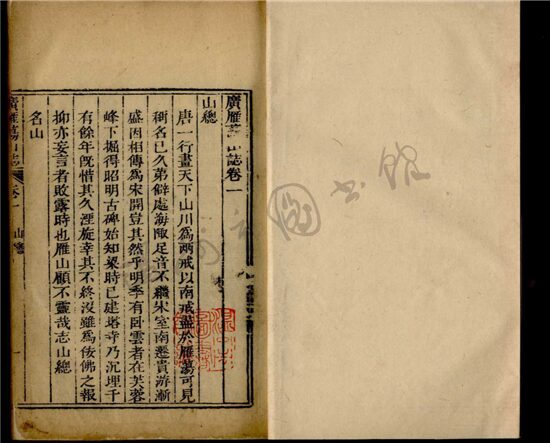 廣雁蕩山誌卷一
山總
唐一行畫天下山川爲兩戒以南戒盡於雁蕩可見
稱名已久第僻處海陬足音不繼宋室南遷貴游漸
盛因相傳爲宋開豈其然乎明季有臥雲者在芙蓉
峰下掘得昭明古碑始知梁時已建塔寺乃沉埋千
有餘年旣惜其久湮旋幸其不終沒雖爲佞佛之報
抑亦妄言者敗露時也雁山顧不靈哉志山總
名山
廣雁蕩山志
卷一
山總